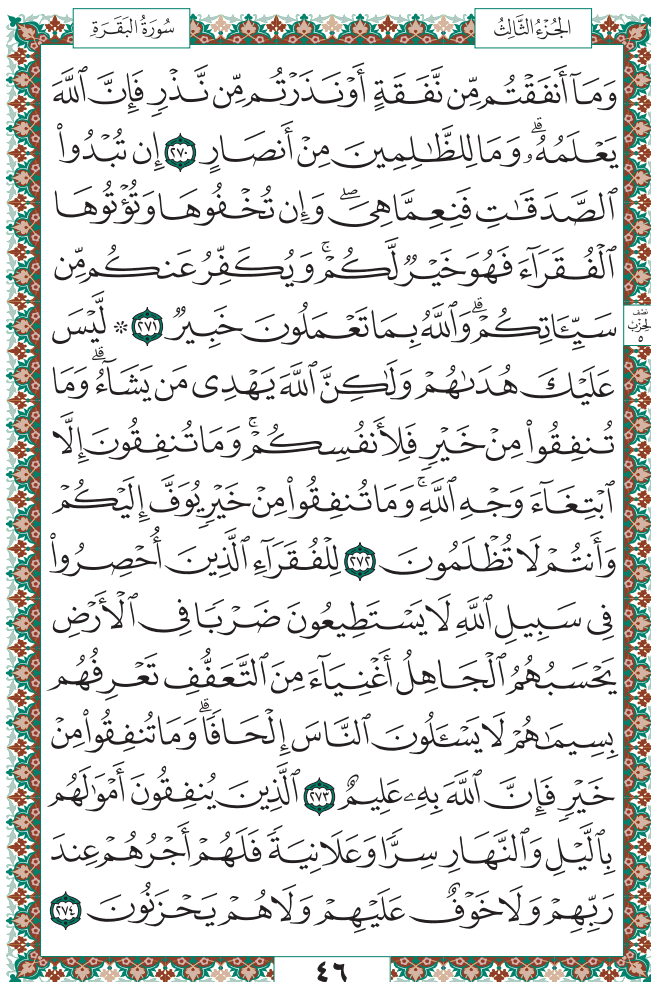 سُورَةُ البَقَرَةِ
الجُزْءُ الثَّالِثُ
وَمَآ أَنفَقْتُم مِّن نَّفَقَةٍ أَوْ نَذَرْتُم مِّن نَّذْرٍ فَإِنَّ ٱللَّهَ
يَعْلَمُهُۥۗ وَمَا لِلظَّـٰلِمِينَ مِنْ أَنصَارٍ ٢٧٠ إِن تُبْدُوا۟
ٱلصَّدَقَـٰتِ فَنِعِمَّا هِىَۖ وَإِن تُخْفُوهَا وَتُؤْتُوهَا
ٱلْفُقَرَآءَ فَهُوَ خَيْرٌ لَّكُمْۚ وَيُكَفِّرُ عَنكُم مِّن
سَيِّـَٔاتِكُمْۗ وَٱللَّهُ بِمَا تَعْمَلُونَ خَبِيرٌ ٢٧١ * لَّيْسَ
نصف
الحزب
٥
عَلَيْكَ هُدَىٰهُمْ وَلَـٰكِنَّ ٱللَّهَ يَهْدِى مَن يَشَآءُۗ وَمَا
تُنفِقُوا۟ مِنْ خَيْرٍ فَلِأَنفُسِكُمْۚ وَمَا تُنفِقُونَ إِلَّا
ٱبْتِغَآءَ وَجْهِ ٱللَّهِۚ وَمَا تُنفِقُوا۟ مِنْ خَيْرٍ يُوَفَّ إِلَيْكُمْ
وَأَنتُمْ لَا تُظْلَمُونَ ٢٧٢ لِلْفُقَرَآءِ ٱلَّذِينَ أُحْصِرُوا۟
فِى سَبِيلِ ٱللَّهِ لَا يَسْتَطِيعُونَ ضَرْبًا فِى ٱلْأَرْضِ
يَحْسَبُهُمُ ٱلْجَاهِلُ أَغْنِيَآءَ مِنَ ٱلتَّعَفُّفِ تَعْرِفُهُم
بِسِيمَـٰهُمْ لَا يَسْـَٔلُونَ ٱلنَّاسَ إِلْحَافًاۗ وَمَا تُنفِقُوا۟ مِنْ
خَيْرٍ فَإِنَّ ٱللَّهَ بِهِۦ عَلِيمٌ ٢٧٣ ٱلَّذِينَ يُنفِقُونَ أَمْوَٰلَهُم
بِٱلَّيْلِ وَٱلنَّهَارِ سِرًّا وَعَلَانِيَةً فَلَهُمْ أَجْرُهُمْ عِندَ
رَبِّهِمْ وَلَا خَوْفٌ عَلَيْهِمْ وَلَا هُمْ يَحْزَنُونَ ٢٧٤
٤٦